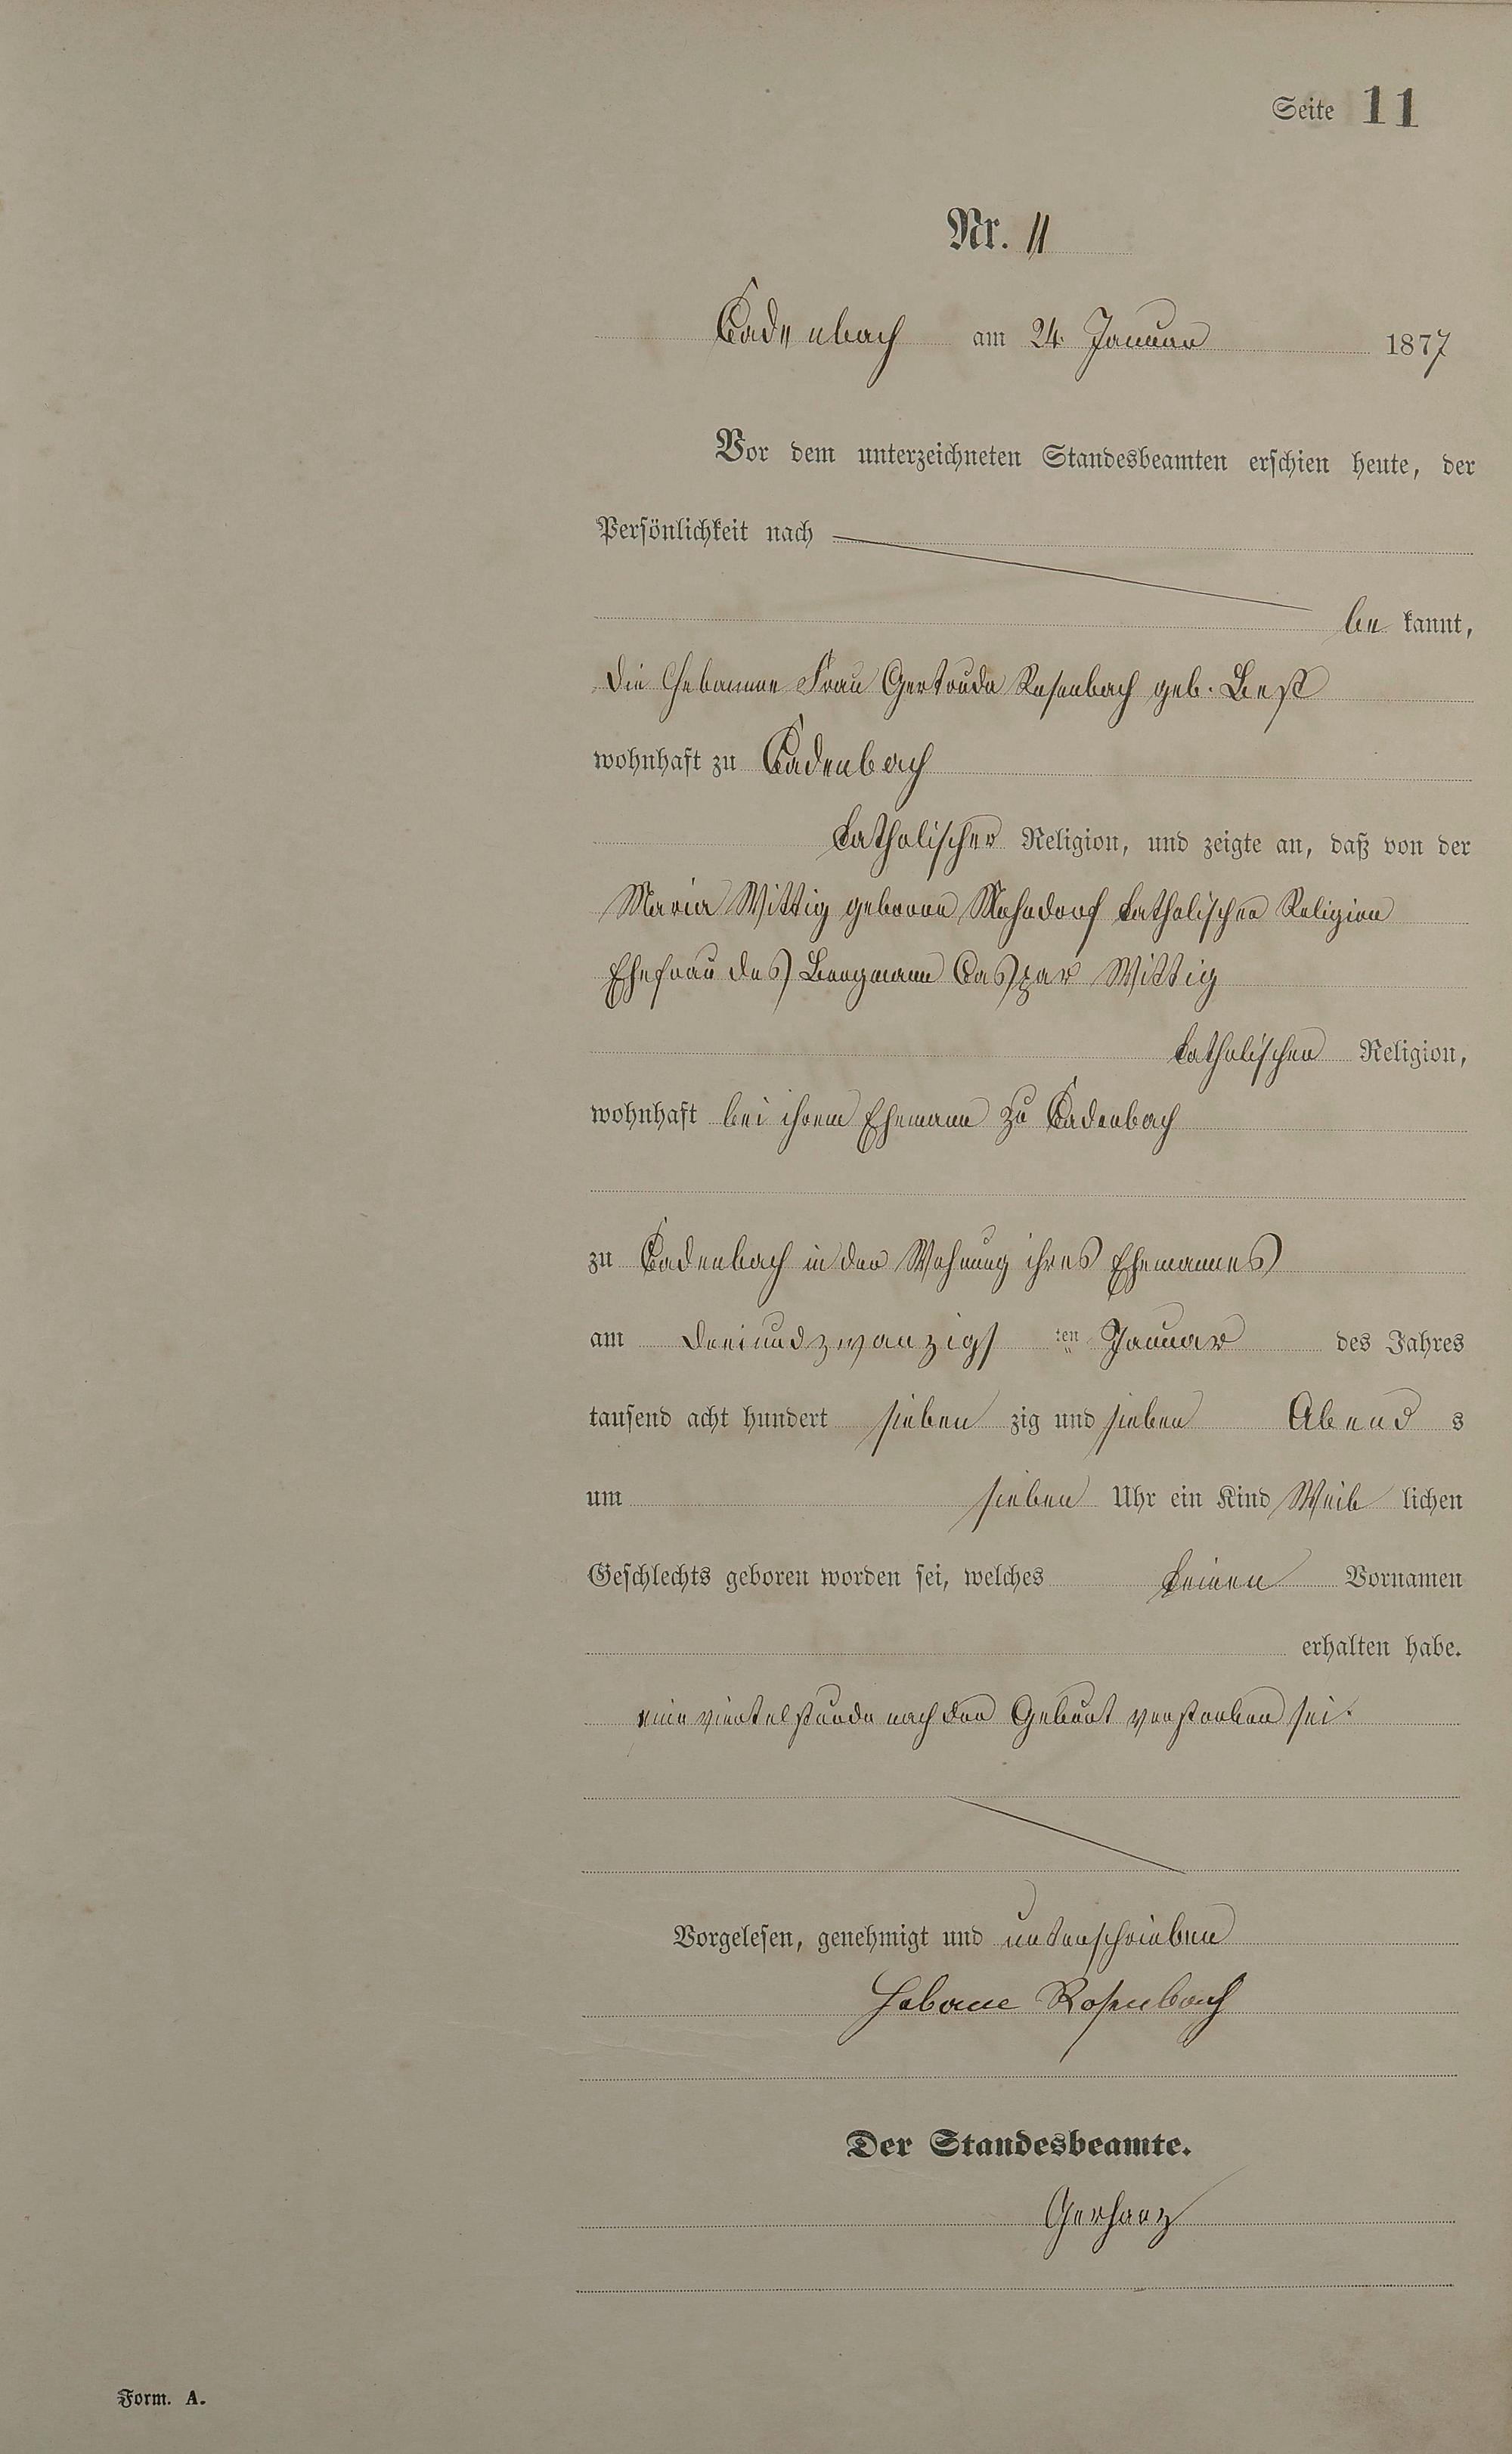 Seite 11
Nr. 11
Cadenbach am 24. Januar 1877
Vor dem unterzeichneten Standesbeamten erschien heute, der
Persönlichkeit nach
be kannt,
die Hebamme Frau Gertrude Rosenbach geb. Best
wohnhaft zu Cadenbach
katholischer Religion, und zeigte an, daß von der
Maria Wittig geborene katholischer Religion
Ehefrau des Bergmann Caspar Wittig
katholischer Religion,
wohnhaft bei ihrem Ehemann zu Cadenbach
zu Cadenbach in der Wohnung ihres Ehemannes
am dreiundzwanzigs ten Januar des Jahres
tausend acht hundert sieben zig und sieben Abend s
um sieben Uhr ein Kind Weib lichen
Geschlechts geboren worden sei, welches keinen Vornamen
erhalten habe.
eine viertelstunde nach der Geburt verstorben sei.
Vorgelesen, genehmigt und unterschrieben
Rosenbach
Der Standesbeamte.
Gerharz
Form. A.